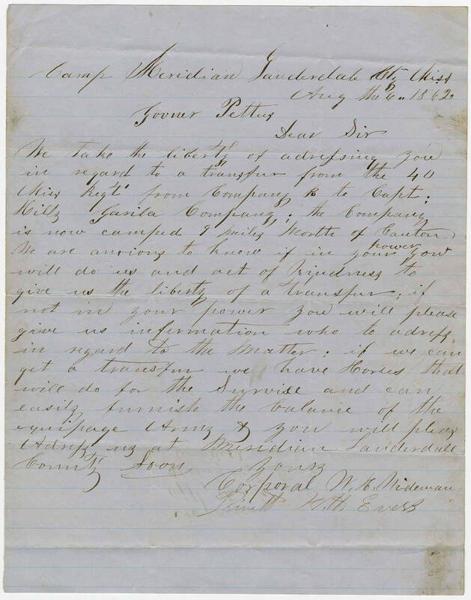 Camp Meridian Lauderdale Cty Miss
Aug the 6" 1862
Govner Pettus
Dear Sir
We take the liberty of adressing you
in regard to a transfur from the 40
Miss Regt from Company K to Capt;
Hills Garila Company; the Company
is now camped 9 miles North of Canton
We are anxious to know if in your power you
will do us and act of Kindness to
give us the liberty of a transfur; if
not in your power you will please
give us information who to adress
in regard to the Matter: if we can
get a transfur we have Horses that
will do for the Survise and can
easily furnish the balance of the
equipage Army & you will pleas
Adress us at Meridian Lauderdale
County Soon
Yours
Corporal W. H. Wideman
H. Evess